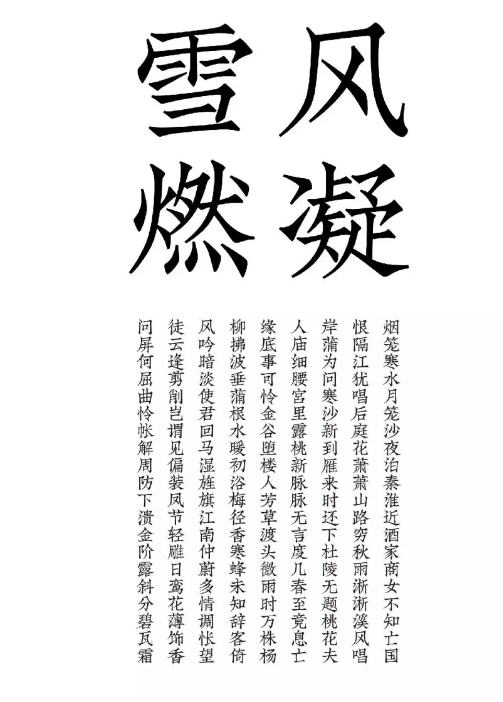 风凝
雪燃
烟笼寒水月笼沙夜泊秦淮近酒家商女不知亡国
恨隔江犹唱后庭花萧萧山路穷秋雨淅淅溪风唱
岸蒲为问寒沙新到雁来时还下杜陵无题桃花夫
人庙细腰宫里露桃新脉脉无言度几春至竟息亡
缘底事可怜金谷堕楼人芳草渡头微雨时万株杨
柳拂波垂蒲根水暖初浴梅径香寒蜂未知辞客倚
风吟暗淡使君回马湿旌旗江南仲蔚多情调怅望
徒云逢剪削岂谓见偏装凤节轻雕日鸾花薄饰香
问屏何屈曲怜帐解周防下溃金阶露斜分碧瓦霜